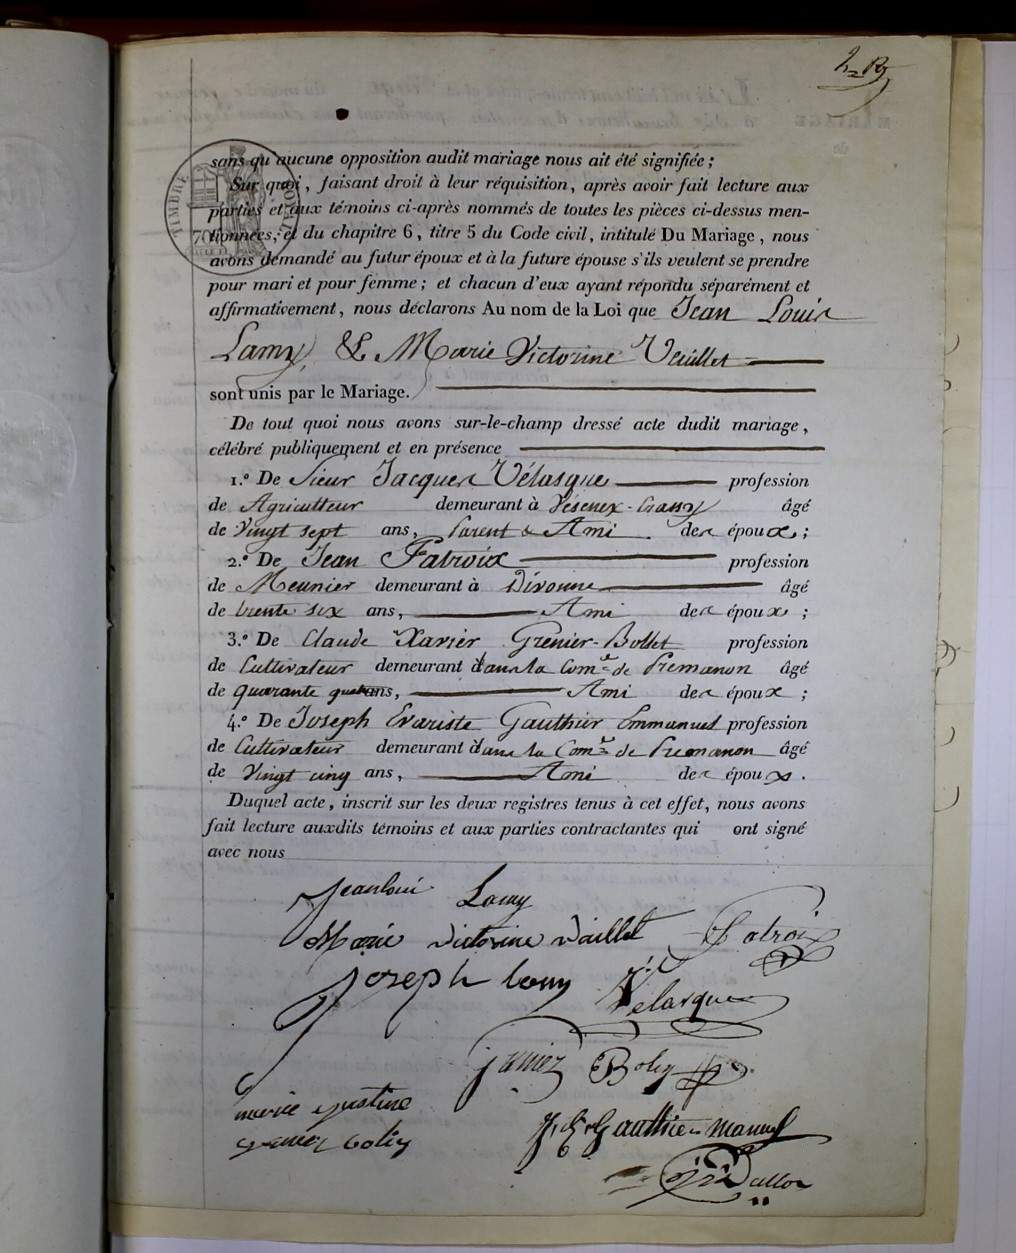 sans qu'aucune opposition audit mariage nous ait été signifiée ;
Sur quoi, faisant droit à leur réquisition, après avoir fait lecture aux
parties et aux témoins ci-après nommés de toutes les pièces ci-dessus men-
tionnées, et du chapitre 6, titre 5 du Code civil, intitulé Du Mariage, nous
avons demandé au futur époux et à la future épouse s'ils veulent se prendre
pour mari et pour femme ; et chacun d'eux ayant répondu séparément et
affirmativement, nous déclarons Au nom de la Loi que Jean Louis
Lamy, & Marie Victorine Vuillet
sont unis par le Mariage.
De tout quoi nous avons sur-le-champ dressé acte dudit mariage,
célébré publiquement et en présence
1.º De Sieur Jacques Vélasque profession
de Agriculteur demeurant à Vésenex-Crassy âgé
de Vingt sept ans, Parent & Ami des époux ;
2.º De Jean Fatroix profession
de Meunier demeurant à Divonne âgé
de trente six ans, Ami des époux ;
3.º De Claude Xavier Grenier-Bollet profession
de Cultivateur demeurant dans la Com.e de Prémanon âgé
de quarante quatre ans, Ami des époux ;
4.º De Joseph Evariste Gauthier Emmanuel profession
de Cultivateur demeurant dans la Com.e de Premanon âgé
de Vingt cinq ans, Ami des époux.
Duquel acte, inscrit sur les deux registres tenus à cet effet, nous avons
fait lecture auxdits témoins et aux parties contractantes qui ont signé
avec nous
Jeanloui Lamy
Marie victorine Vuillet Fatroix
Joseph lamy Vélasque
marie justine
J. E. Gauthier manuel
TIMBRE ROYAL
70